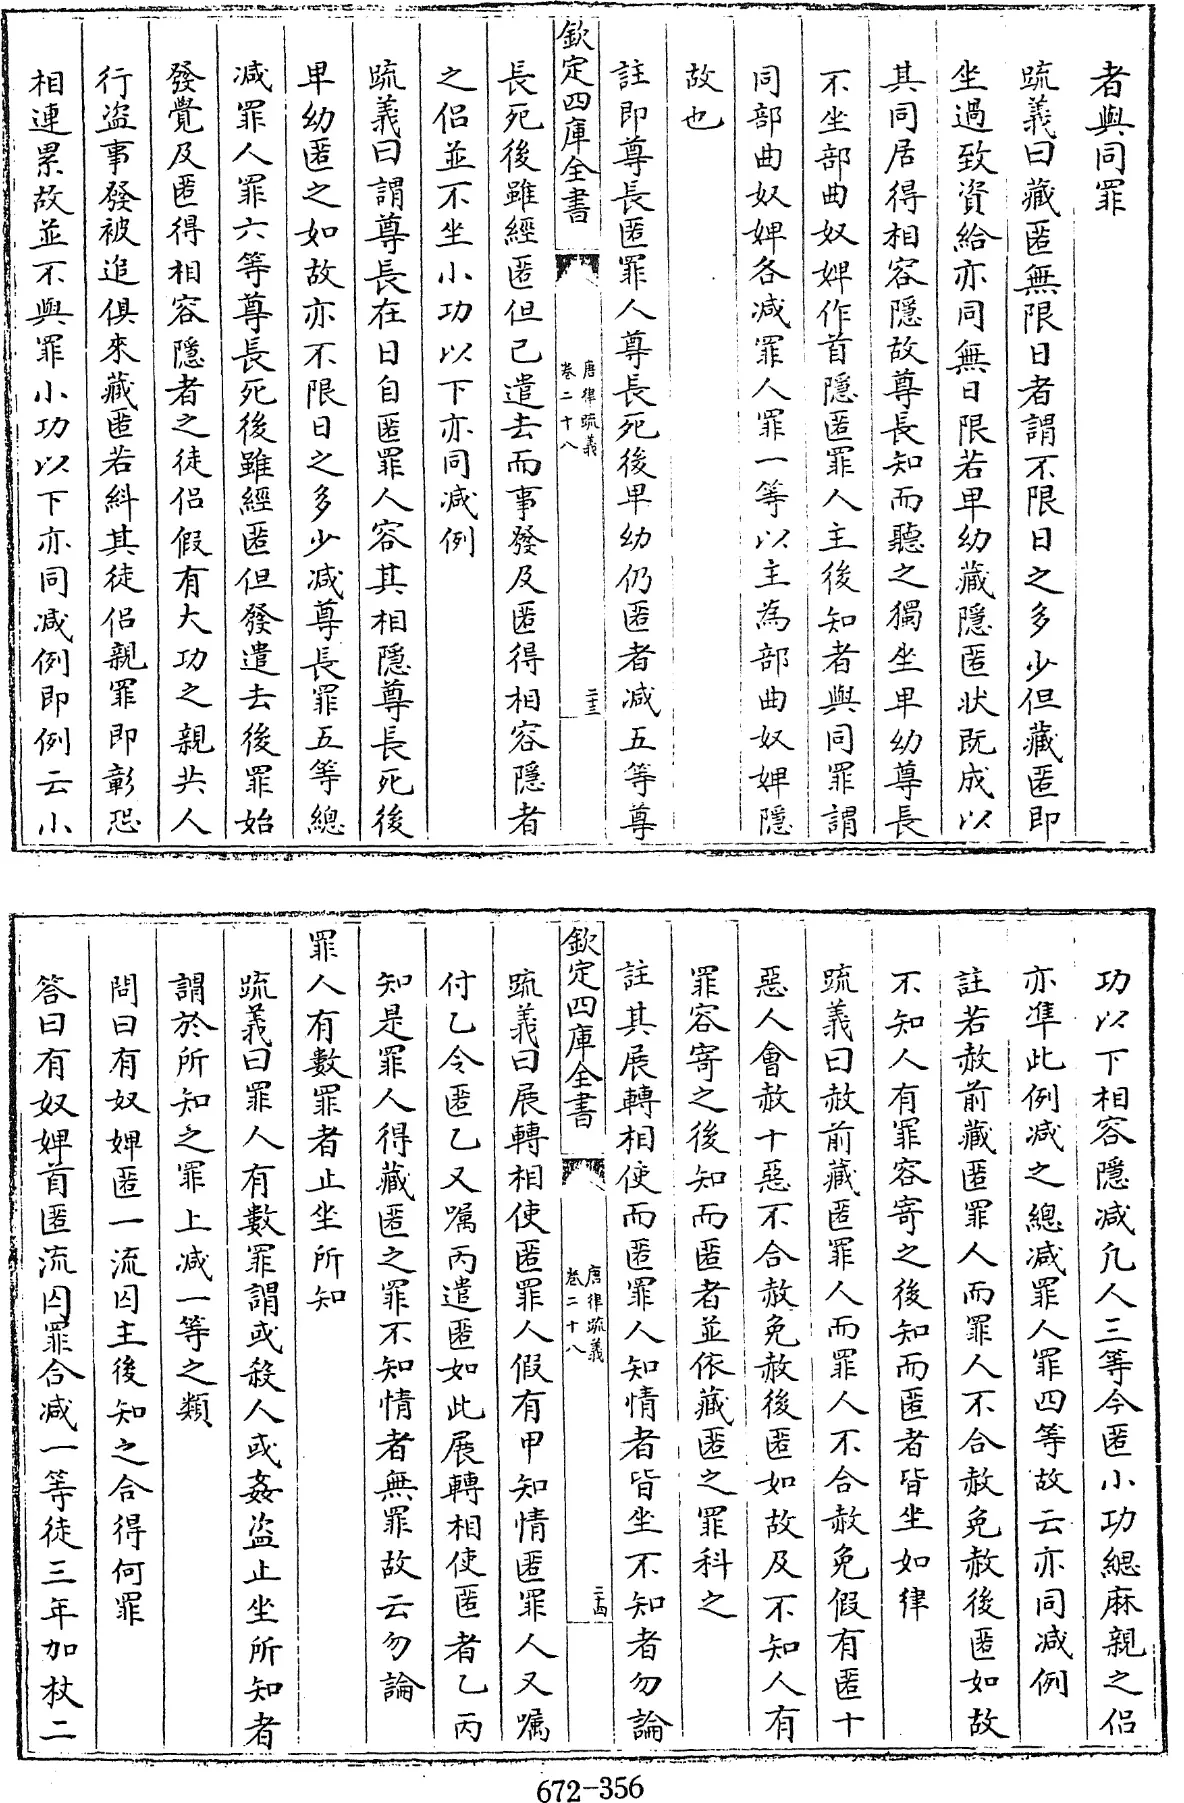 者與同罪
疏義曰藏匿無限日者謂不限日之多少但藏匿即
坐過致資給亦同無日限若卑幼藏隱匿狀既成以
其同居得相容隱故尊長知而聽之獨坐卑幼尊長
不坐部曲奴婢作首隱匿罪人主後知者與同罪謂
同部曲奴婢各減罪人罪一等以主為部曲奴婢隱
故也
註即尊長匿罪人尊長死後卑幼仍匿者減五等尊
欽定四庫全書
唐律疏義
卷二十八
二十三
長死後雖經匿但已遣去而事發及匿得相容隱者
之侶並不坐小功以下亦同減例
疏義曰謂尊長在日自匿罪人容其相隱尊長死後
卑幼匿之如故亦不限日之多少減尊長罪五等總
減罪人罪六等尊長死後雖經匿但發遣去後罪始
發覺及匿得相容隱者之徒侶假有大功之親共人
行盜事發被追俱來藏匿若糾其徒侶親罪即彰恐
相連累故並不與罪小功以下亦同減例即例云小
功以下相容隱減凡人三等今匿小功緦麻親之侶
亦準此例減之總減罪人罪四等故云亦同減例
註若赦前藏匿罪人而罪人不合赦免赦後匿如故
不知人有罪容寄之後知而匿者皆坐如律
疏義曰赦前藏匿罪人而罪人不合赦免假有匿十
惡人會赦十惡不合赦免赦後匿如故及不知人有
罪容寄之後知而匿者並依藏匿之罪科之
註其展轉相使而匿罪人知情者皆坐不知者勿論
欽定四庫全書
唐律疏義
卷二十八
二十四
疏義曰展轉相使匿罪人假有甲知情匿罪人又囑
付乙令匿乙又囑丙遣匿如此展轉相使匿者乙丙
知是罪人得藏匿之罪不知情者無罪故云勿論
罪人有數罪者止坐所知
疏義曰罪人有數罪謂或殺人或姦盜止坐所知者
謂於所知之罪上減一等之類
問曰有奴婢匿一流囚主後知之合得何罪
答曰有奴婢首匿流囚罪合減一等徒三年加杖二
672-356